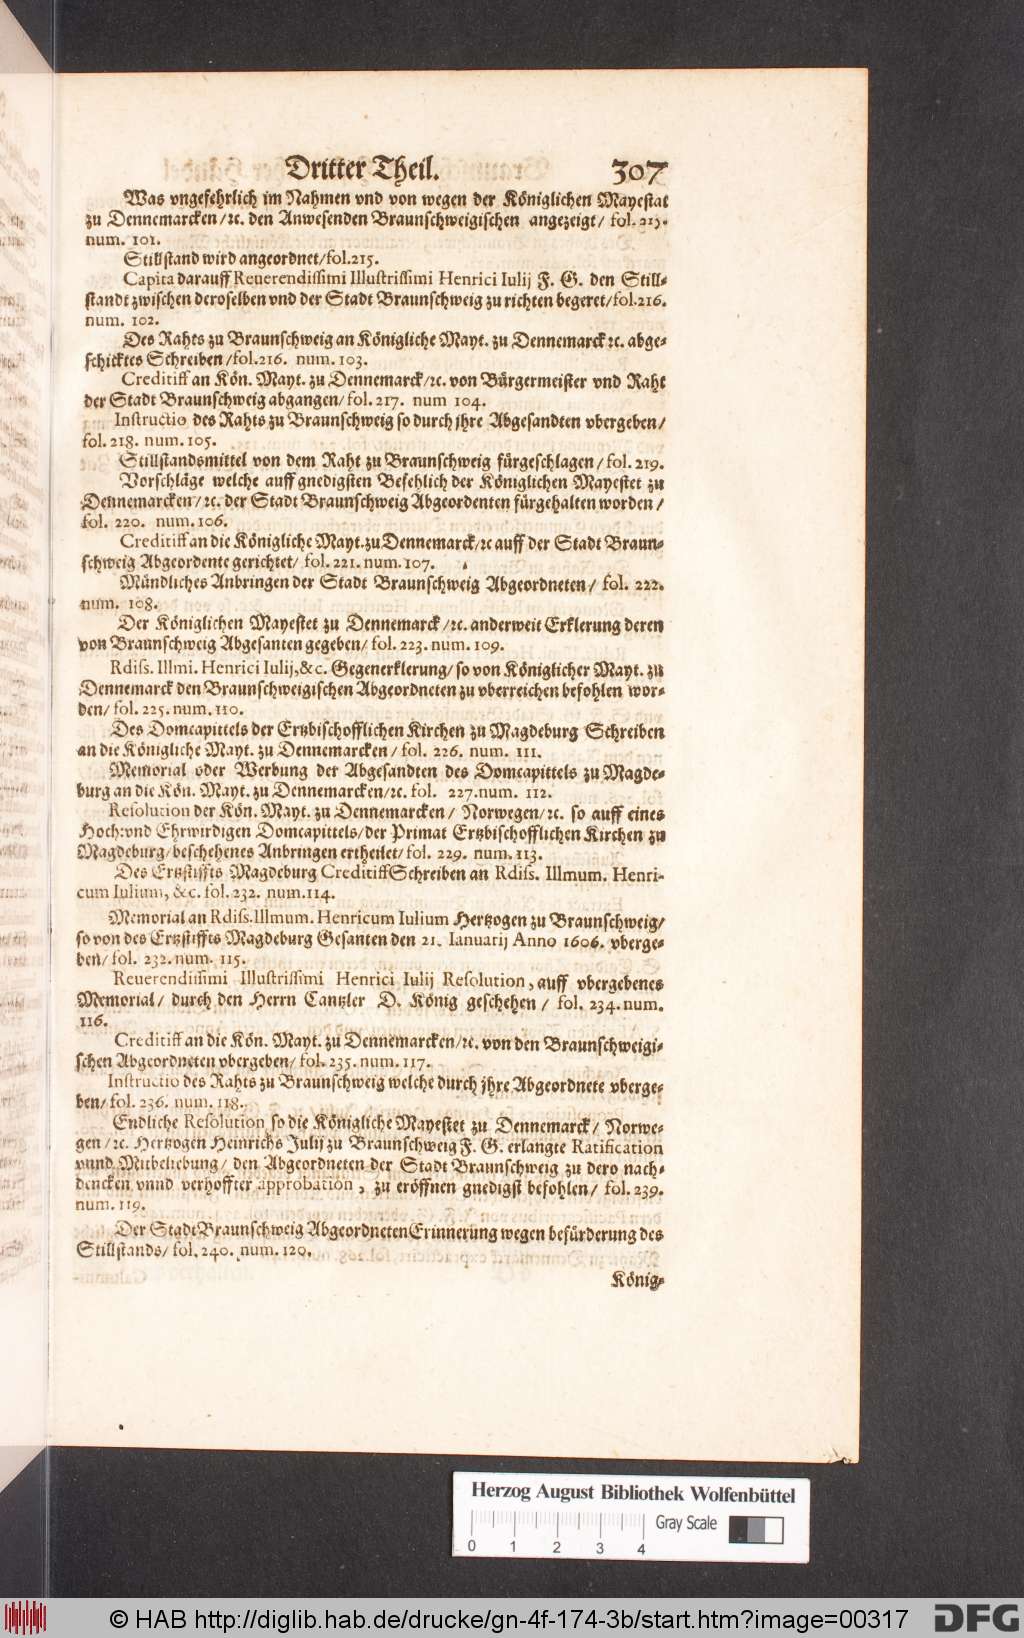 Dritter Theil. 307
Was vngefehrlich im Nahmen vnd von wegen der Königlichen Mayestat
zu Dennemarcken/ꝛc. den Anwesenden Braunschweigischen angezeigt/ fol. 215.
num. 101.
Stillstand wird angeordnet/fol.215.
Capita darauff Reuerendissimi Illustrissimi Henrici Iulij F. G. den Still-
standt zwischen deroselben vnd der Stadt Braunschweig zu richten begeret/fol.216.
num. 102.
Des Rahts zu Braunschweig an Königliche Mayt. zu Dennemarck ꝛc. abge-
schicktes Schreiben /fol.216. num. 103.
Creditiff an Kön. Mayt. zu Dennemarck/ꝛc. von Bürgermeister vnd Raht
der Stadt Braunschweig abgangen/ fol. 217. num 104.
Instructio des Rahts zu Braunschweig so durch jhre Abgesandten vbergeben/
fol. 218. num. 105.
Stillstandsmittel von dem Raht zu Braunschweig fürgeschlagen / fol. 219.
Vorschläge welche auff gnedigsten Befehlich der Königlichen Mayestet zu
Dennemarcken /ꝛc. der Stadt Braunschweig Abgeordenten fürgehalten worden /
fol. 220. num. 106.
Creditiff an die Königliche Mayt. zu Dennemarck/ꝛc auff der Stadt Braun-
schweig Abgeordente gerichtet/ fol. 221. num. 107.
Mündliches Anbringen der Stadt Braunschweig Abgeordneten / fol. 222.
num. 108.
Der Königlichen Mayestet zu Dennemarck /ꝛc. anderweit Erklerung deren
von Braunschweig Abgesanten gegeben/ fol. 223. num. 109.
Rdiss. Illmi. Henrici Iulij, &c. Gegenerklerung/ so von Königlicher Mayt. zu
Dennemarck den Braunschweigischen Abgeordneten zu vberreichen befohlen wor-
den/ fol. 225. num. 110.
Des Domcapittels der Ertzbischofflichen Kirchen zu Magdeburg Schreiben
an die Königliche Mayt. zu Dennemarcken / fol. 226. num. 111.
Memorial oder Werbung der Abgesandten des Domcapittels zu Magde-
burg an die Kön. Mayt. zu Dennemarcken/ꝛc. fol. 227. num. 112.
Resolution der Kön. Mayt. zu Dennemarcken / Norwegen/ꝛc. so auff eines
Hoch: vnd Ehrwirdigen Domcapittels/ der Primat Ertzbischofflichen Kirchen zu
Magdeburg/ beschehenes Anbringen ertheilet/ fol. 229. num. 113.
Des Ertzstiffts Magdeburg Creditiff Schreiben an Rdiss. Illmum. Henri-
cum Iulium, &c. fol. 232. num. 114.
Memorial an Rdiss. Illmum. Henricum Iulium Hertzogen zu Braunschweig/
so von des Ertzstiffts Magdeburg Gesanten den 21. Ianuarij Anno 1606. vberge-
ben/ fol. 232. num. 115.
Reuerendissimi Illustrissimi Henrici Iulij Resolution, auff vbergebenes
Memorial/ durch den Herrn Cantzler D. König geschehen / fol. 234. num.
116.
Creditiff an die Kön. Mayt. zu Dennemarcken/ꝛc. von den Braunschweigi-
schen Abgeordneten vbergeben/ fol. 235. num. 117.
Instructio des Rahts zu Braunschweig welche durch jhre Abgeordnete vberge-
ben/ fol. 236. num. 118.
Endliche Resolution so die Königliche Mayestet zu Dennemarck/ Norwe-
gen /ꝛc. Hertzogen Heinrichs Julij zu Braunschweig F. G. erlangte Ratification
vnnd Mitbeliebung/ den Abgeordneten der Stadt Braunschweig zu dero nach-
dencken vnnd verhoffter approbation, zu eröffnen gnedigst befohlen/ fol. 239.
num. 119.
Der Stadt Braunschweig Abgeordneten Erinnerung wegen befürderung des
Stillstands/ fol. 240. num. 120.
König-
Herzog August Bibliothek Wolfenbüttel
Gray Scale
0 1 2 3 4
© HAB http://diglib.hab.de/drucke/gn-4f-174-3b/start.htm?image=00317
DFG